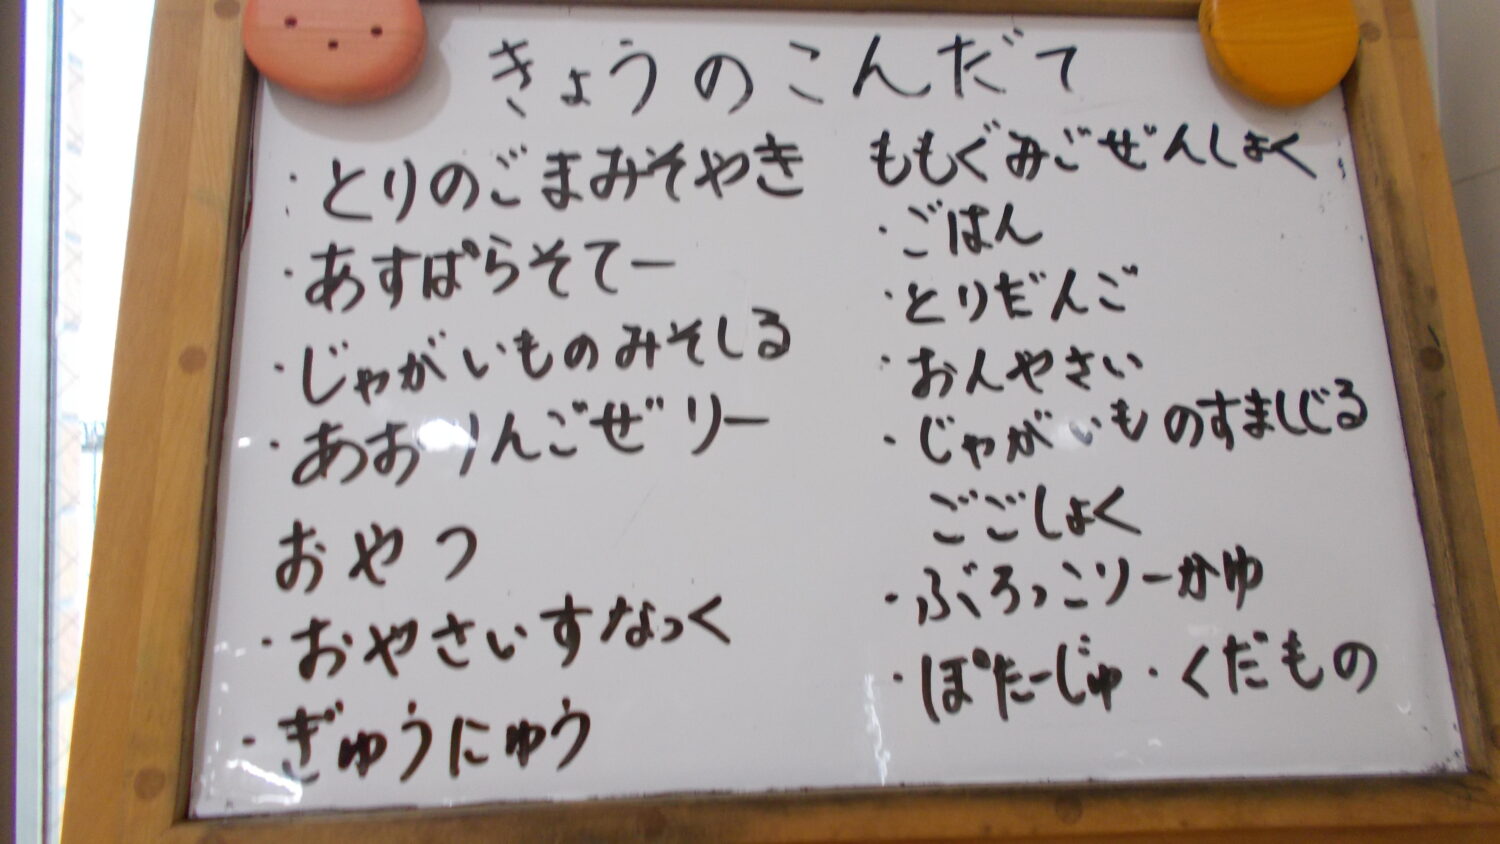 きょうのこんだて
・とりのごまみそやき
・あすぱらそてー
・じゃがいものみそしる
・あおりんごぜりー
おやつ
・おやさいすなっく
・ぎゅうにゅう
ももぐみごぜんしょく
・ごはん
・とりだんご
・おんやさい
・じゃがいものすましじる
ごごしょく
・ぶろっこりーかゆ
・ぽたーじゅ・くだもの